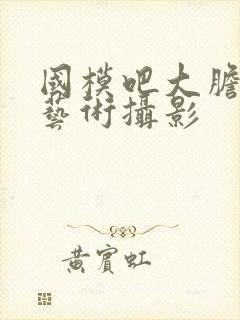 國模吧大膽
藝術攝影
黃賓虹